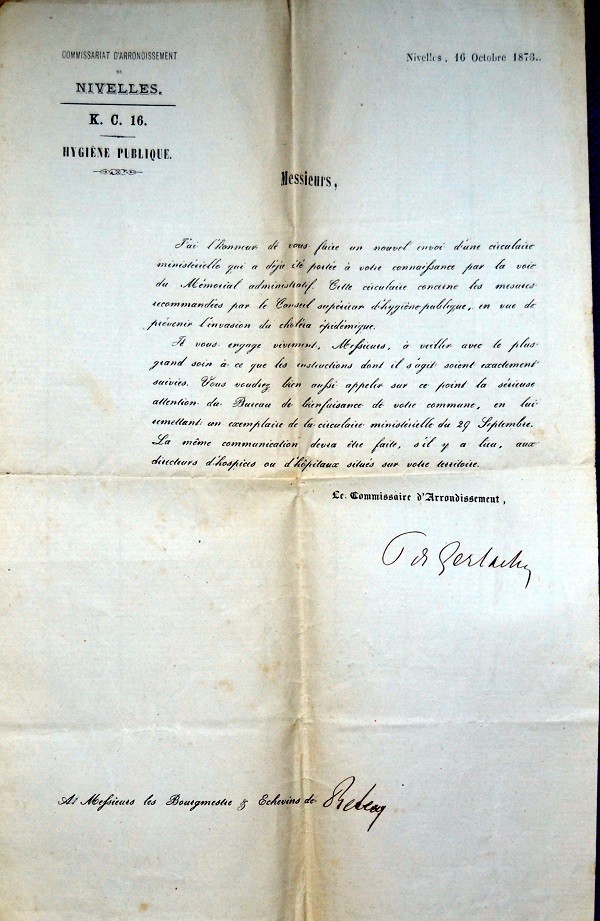 COMMISSARIAT D'ARRONDISSEMENT
DE
NIVELLES.
K. C. 16.
HYGIÈNE PUBLIQUE.
Nivelles, 16 Octobre 1873..
Messieurs,
J'ai l'honneur de vous faire un nouvel envoi d'une circulaire
ministérielle qui a déja été portée à votre connaissance par la voie
du Mémorial administratif. Cette circulaire concerne les mesures
recommandées par le Conseil supérieur d'hygiène publique, en vue de
prévenir l'invasion du choléra épidémique.
Je vous engage vivement, Messieurs, à veiller avec le plus
grand soin à ce que les instructions dont il s'agit soient exactement
suivies. Vous voudrez bien aussi appeler sur ce point la sérieuse
attention du Bureau de bienfaisance de votre commune, en lui
remettant un exemplaire de la circulaire ministérielle du 29 Septembre.
La même communication devra être faite, s'il y a lieu, aux
directeurs d'hospices ou d'hôpitaux situés sur votre territoire.
Le Commissaire d'Arrondissement,
de Gerlache
A Messieurs les Bourgmestre & Echevins de